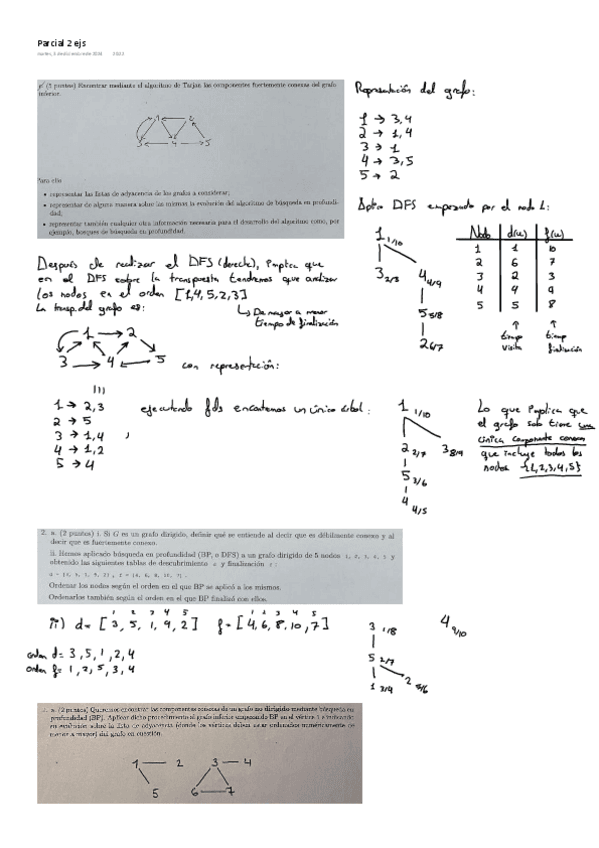 Parcial 2 ejs
(2 puntos) Encontrar mediante el algoritmo de Tarjan las componentes fuertemente conexas del grafo
inferior.
1 2
3 4 5
Para ello
• representar las listas de adyacencia de los grafos a considerar;
• representar de alguna manera sobre las mismas la evolución del algoritmo de búsqueda en profundi-
dad;
• representar también cualquier otra información necesaria para el desarrollo del algoritmo como, por
ejemplo, bosques de búsqueda en profundidad.
Representación del grafo:
1 → 3,4
2 → 1,4
3 → 1
4 → 3,5
5 → 2
DFS empezando por el nodo 1:
1 1/10
3 2/3 4 4/9
5 5/8
2 6/7
Nodo d(u) f(u)
1 1 10
2 6 7
3 2 3
4 4 9
5 5 8
tiemp visita
tiemp finalización
Después de realizar el DFS (derecha), implica que
en el DFS sobre la transpuesta tendremos que analizar
los nodos en el orden [1,4,5,2,3]
↳ De mayor a menor
tiempo de finalización
La transp. del grafo es:
1 → 2
3 → 4 ← 5
con representación:
1 → 2,3
2 → 5
3 → 1,4
4 → 1,2
5 → 4
ejecutando dfs encontramos un único árbol:
1 1/10
2 2/7 3 8/9
5 3/6
4 4/5
Lo que implica que
el grafo solo tiene una
única componente conexa
que incluye todos los
nodos {1,2,3,4,5}
2. a. (2 puntos) i. Si G es un grafo dirigido, definir qué se entiende al decir que es débilmente conexo y al
decir que es fuertemente conexo.
ii. Hemos aplicado búsqueda en profundidad (BP, o DFS) a un grafo dirigido de 5 nodos 1, 2, 3, 4, 5 y
obtenido las siguientes tablas de descubrimiento d y finalización f:
d = [3, 5, 1, 9, 2] , f = [4, 6, 8, 10, 7] .
Ordenar los nodos según el orden en el que BP se aplicó a los mismos.
Ordenarlos también según el orden en el que BP finalizó con ellos.
1 2 3 4 5 1 2 3 4 5
ii) d= [3, 5, 1, 9, 2] f= [4, 6, 8, 10, 7]
orden d= 3,5,1,2,4
orden f= 1,2,5,3,4
3 1/8 4 9/10
5 2/7
1 3/4 2 5/6
a. (2 puntos) Queremos encontrar las componentes conexas de un grafo no dirigido mediante búsqueda en
profundidad (BP). Aplicar dicho procedimiento al grafo inferior empezando BP en el vértice 1 e indicando
su evolución sobre la lista de adyacencia (donde los vértices deben estar ordenados numéricamente de
menor a mayor) del grafo en cuestión.
1 2 3 4
5 6 7